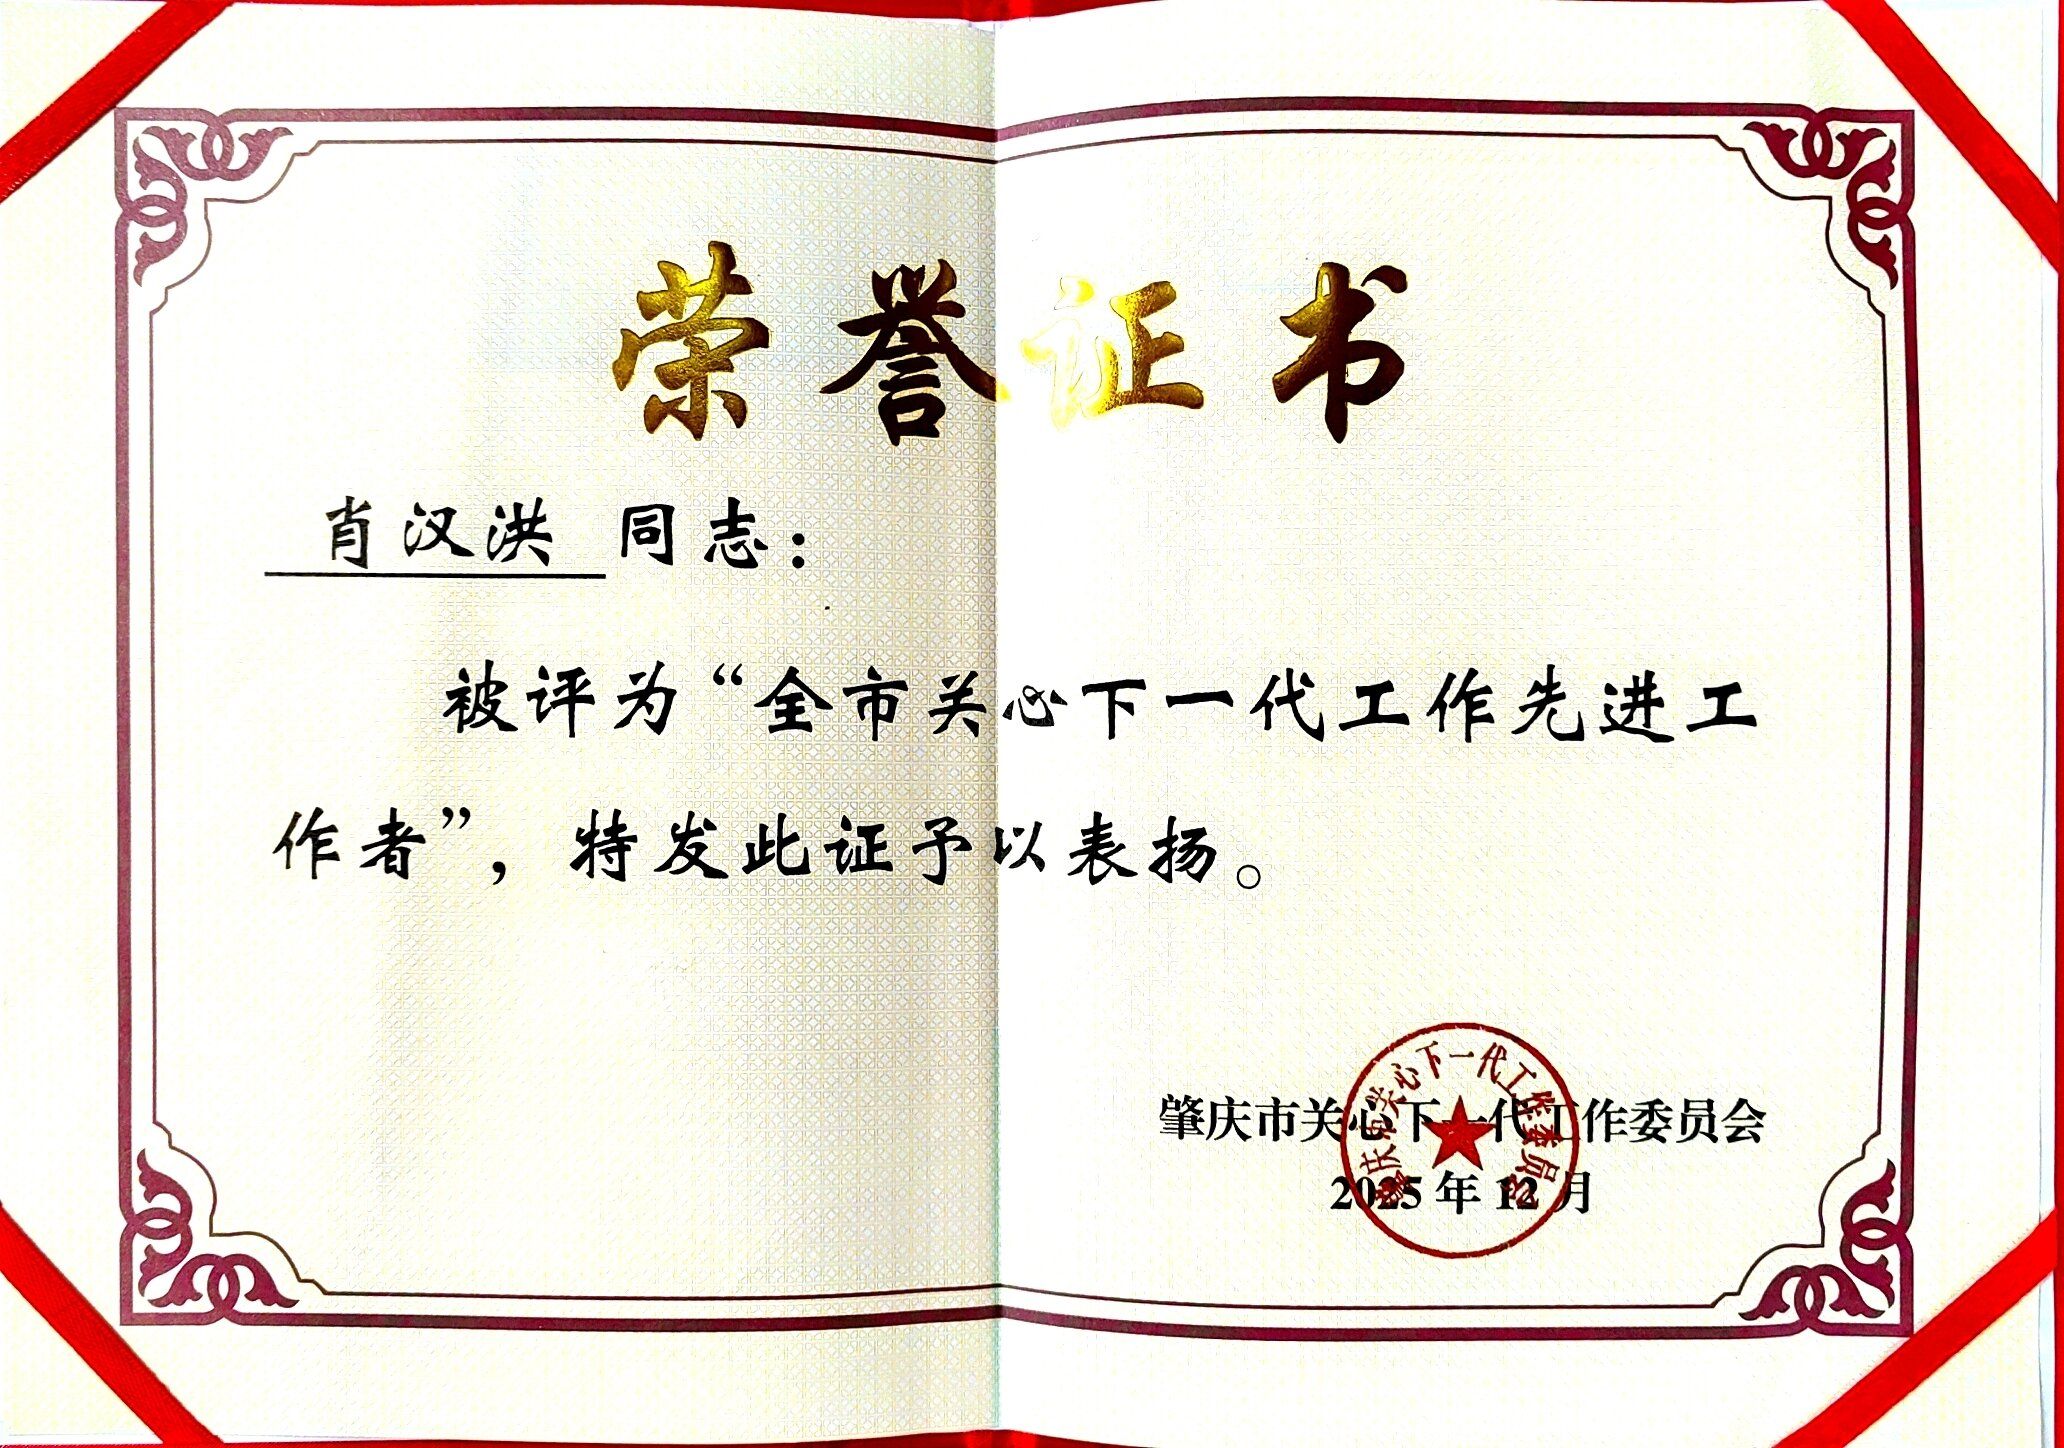 荣誉证书
肖汉洪 同志：
被评为“全市关心下一代工作先进工
作者”，特发此证予以表扬。
肇庆市关心下一代工作委员会
2025年12月
肇庆市关心下一代工作委员会